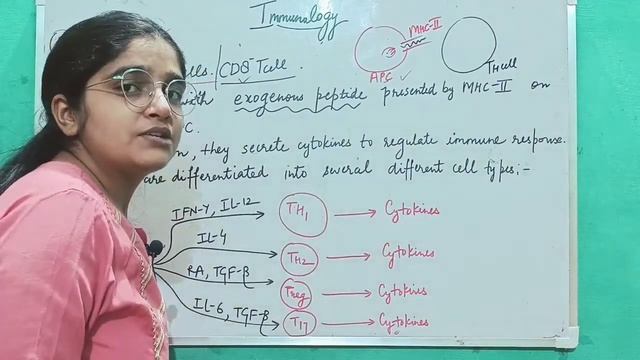 Immunology
MHC-II
APC ✓
TH cell
cells. / CD8 T cell
with exogenous peptide presented by MHC-II on
C.
n, they secrete cytokines to regulate immune response.
are differentiated into several different cell types;-
IFN-γ, IL-12 → TH1 → Cytokines
IL-4 → TH2 → Cytokines
RA, TGF-β → Treg → Cytokines
IL-6, TGF-β → T17 → Cytokines